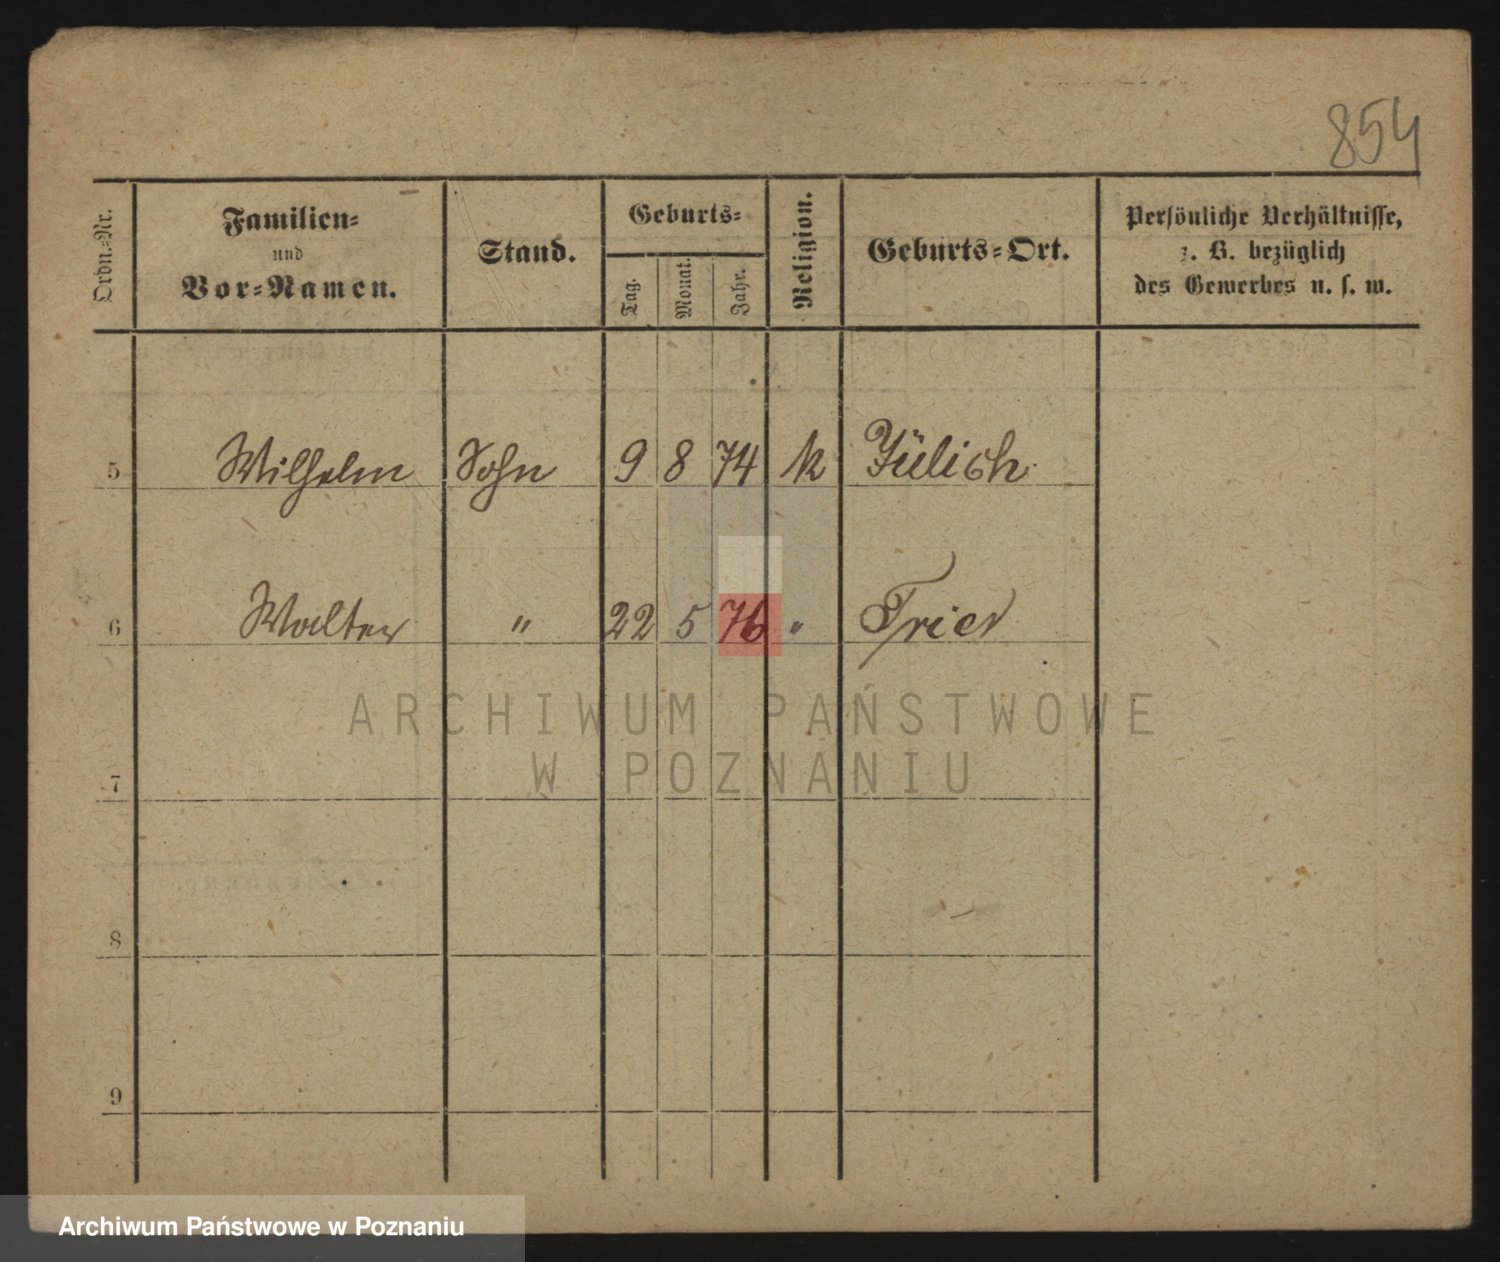 854
Ordn.-Nr.
Familien-
und
Vor-Namen.
Stand.
Geburts-
Tag.
Monat.
Jahr.
Religion.
Geburts-Ort.
Persönliche Verhältnisse,
z. B. bezüglich
des Gewerbes u. s. w.
5 Wilhelm Sohn 9 8 74 k Jülich
6 Walter " 22 5 76 " Trier
7
8
9
ARCHIWUM PAŃSTWOWE
W POZNANIU
Archiwum Państwowe w Poznaniu